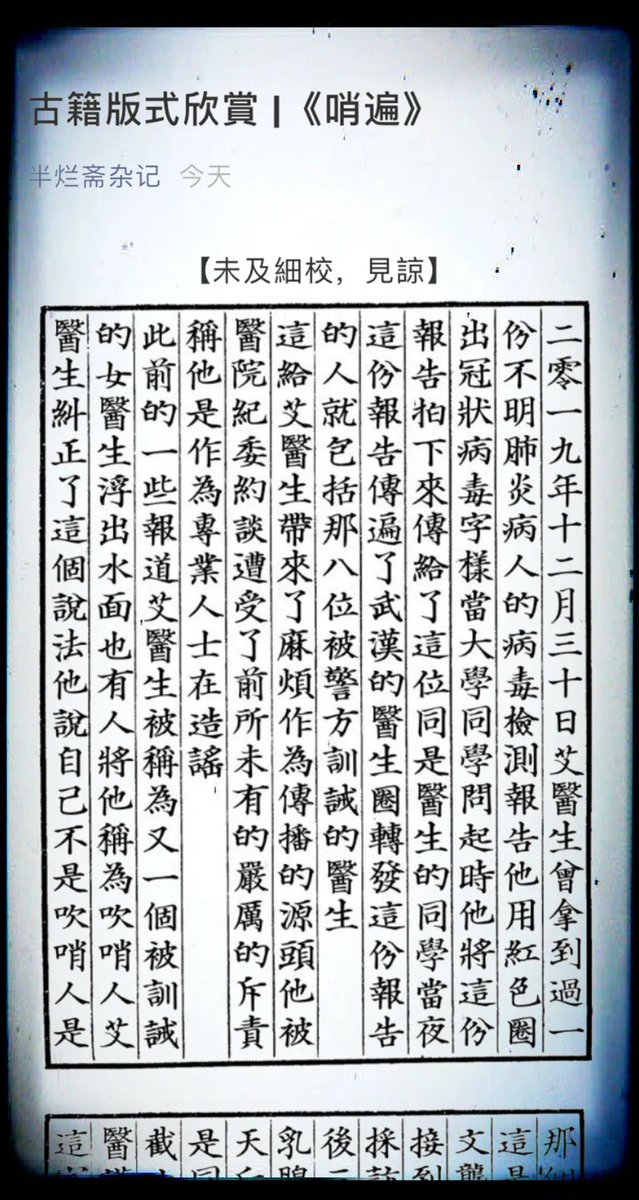 古籍版式欣賞 | 《哨遍》
半烂斋杂记 今天
【未及細校，見諒】
二零一九年十二月三十日艾醫生曾拿到過一
份不明肺炎病人的病毒檢測報告他用紅色圈
出冠狀病毒字樣當大學同學問起時他將這份
報告拍下來傳給了這位同是醫生的同學當夜
這份報告傳遍了武漢的醫生圈轉發這份報告
的人就包括那八位被警方訓誡的醫生
這給艾醫生帶來了麻煩作為傳播的源頭他被
醫院紀委約談遭受了前所未有的嚴厲的斥責
稱他是作為專業人士在造謠
此前的一些報道艾醫生被稱為又一個被訓誡
的女醫生浮出水面也有人將他稱為吹哨人艾
醫生糾正了這個說法他說自己不是吹哨人是
那
這是
文
接到
採訪
後
乳腺
天
是
截
醫
這